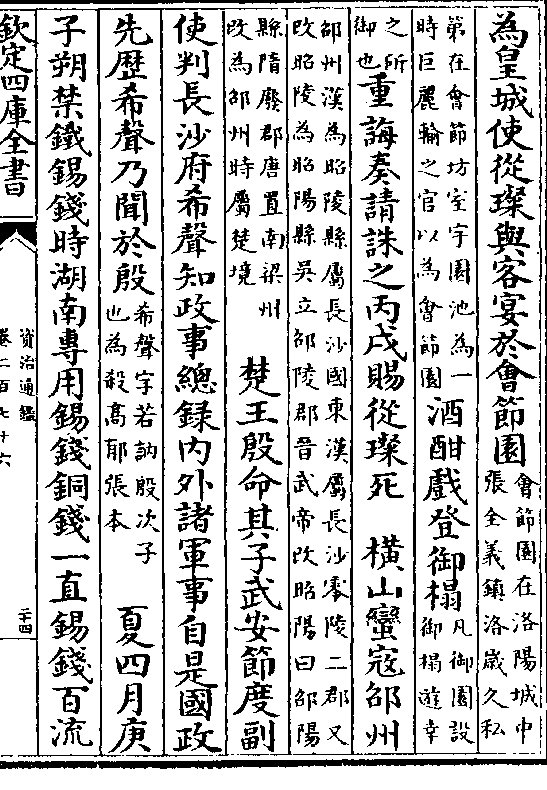 為皇城使從璨與客宴於會節園會節園在洛陽城中張全義鎮洛歲久私
第在會節坊室宇園池為一時巨麗輸之官以為會節園酒酣戲登御榻凡御園設御榻遊幸
之所御也重誨奏請誅之丙戌賜從璨死　橫山蠻寇邵州
邵州漢為昭陵縣屬長沙國東漢屬長沙零陵二郡又改昭陵為昭陽縣吳立邵陵郡晉武帝改昭陽曰邵陽
縣隋廢郡唐置南梁州改為邵州時屬楚境　楚王殷命其子武安節度副
使判長沙府希聲知政事總錄內外諸軍事自是國政
先歷希聲乃聞於殷希聲字若訥殷次子也為殺髙郁張本　夏四月庚
子朔禁鐵錫錢時湖南專用錫錢銅錢一直錫錢百流
欽定四庫全書
資治通鑑
卷二百七十六
二十四